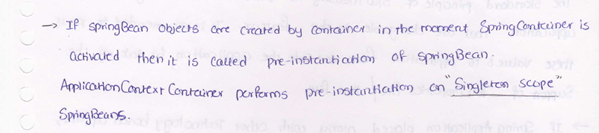 → If springBean objects are created by container in the moment SpringContainer is
activated then it is called pre-instantiation of springBean.
ApplicationContext Container performs pre-instantiation on "Singleton scope"
SpringBeans.